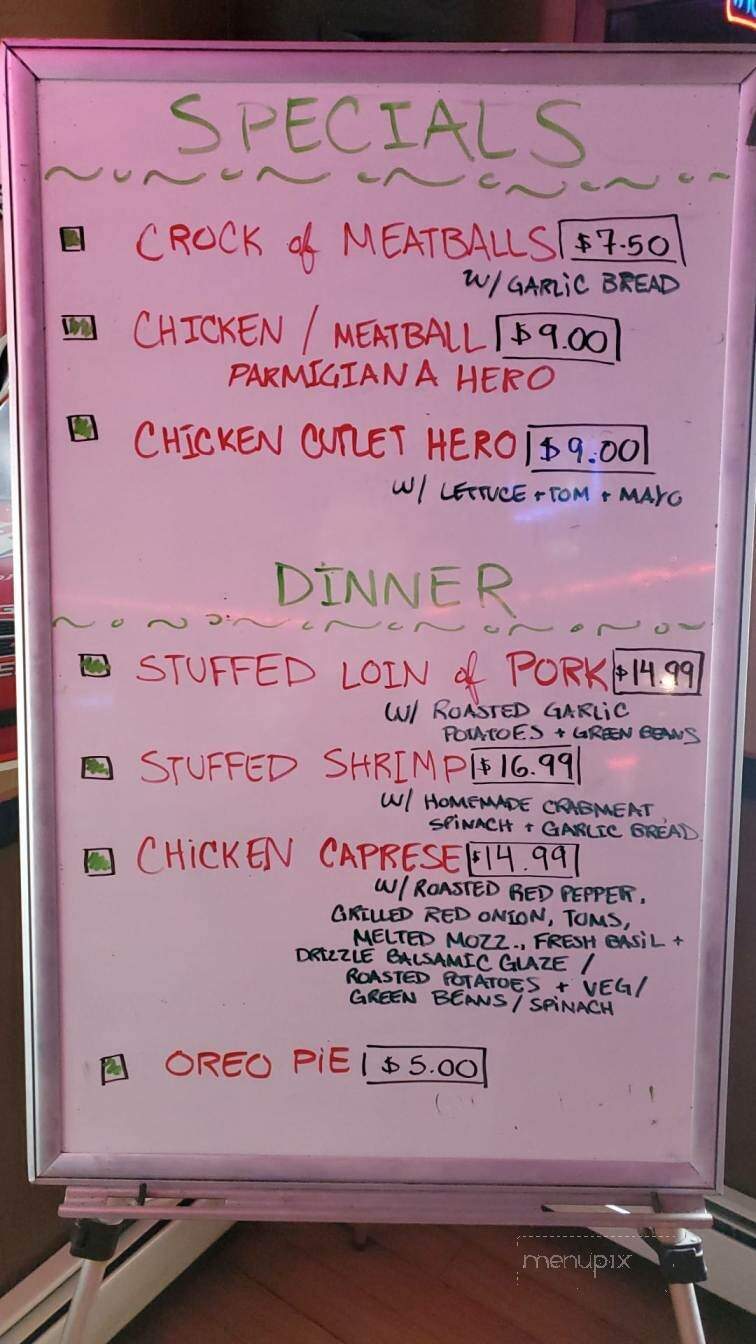 SPECIALS
CROCK of MEATBALLS $7.50
W/ GARLIC BREAD
CHICKEN / MEATBALL $9.00
PARMIGIANA HERO
CHICKEN CUTLET HERO $9.00
W/ LETTUCE + TOM + MAYO
DINNER
STUFFED LOIN of PORK $14.99
W/ ROASTED GARLIC
POTATOES + GREEN BEANS
STUFFED SHRIMP $16.99
W/ HOMEMADE CRABMEAT,
SPINACH + GARLIC BREAD
CHICKEN CAPRESE $14.99
W/ ROASTED RED PEPPER,
GRILLED RED ONION, TOMS,
MELTED MOZZ., FRESH BASIL +
DRIZZLE BALSAMIC GLAZE /
ROASTED POTATOES + VEG/
GREEN BEANS / SPINACH
OREO PIE $5.00
menupix